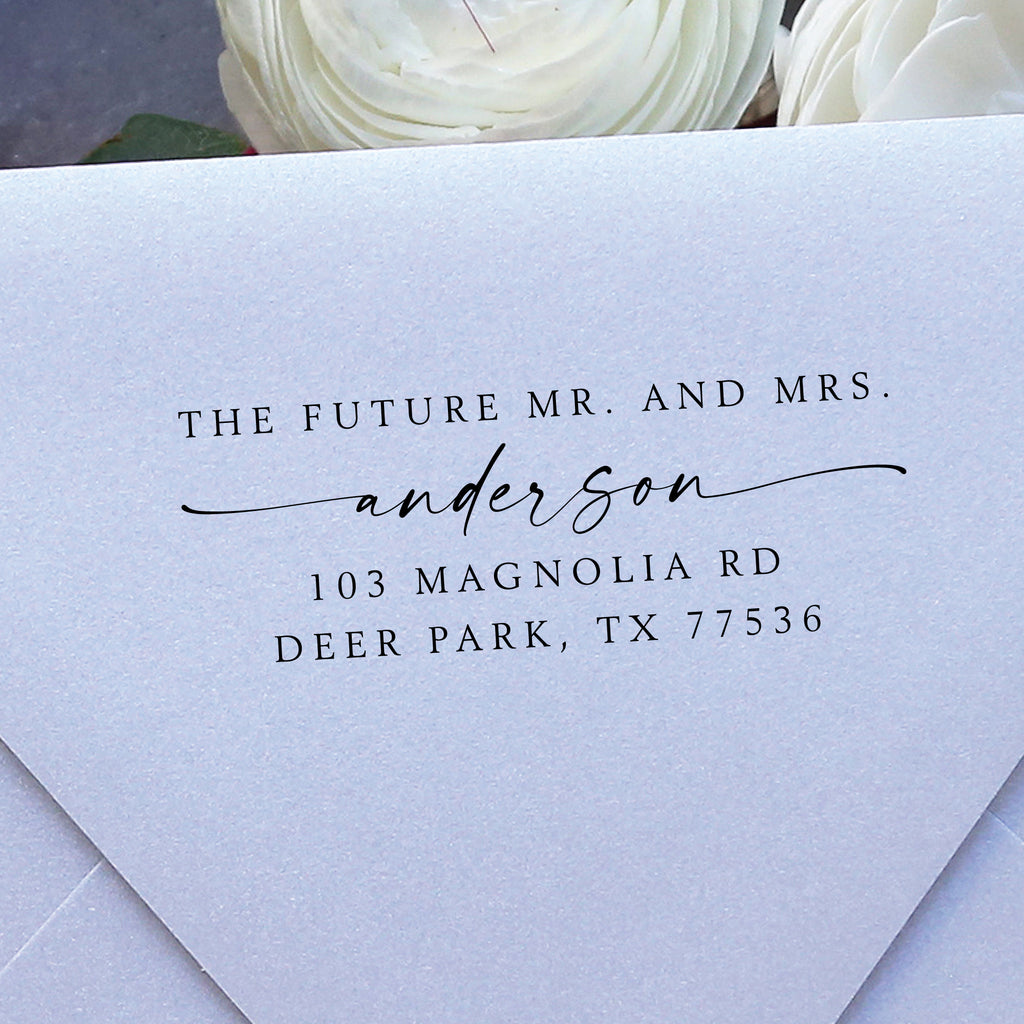 THE FUTURE MR. AND MRS.
anderson
103 MAGNOLIA RD
DEER PARK, TX 77536